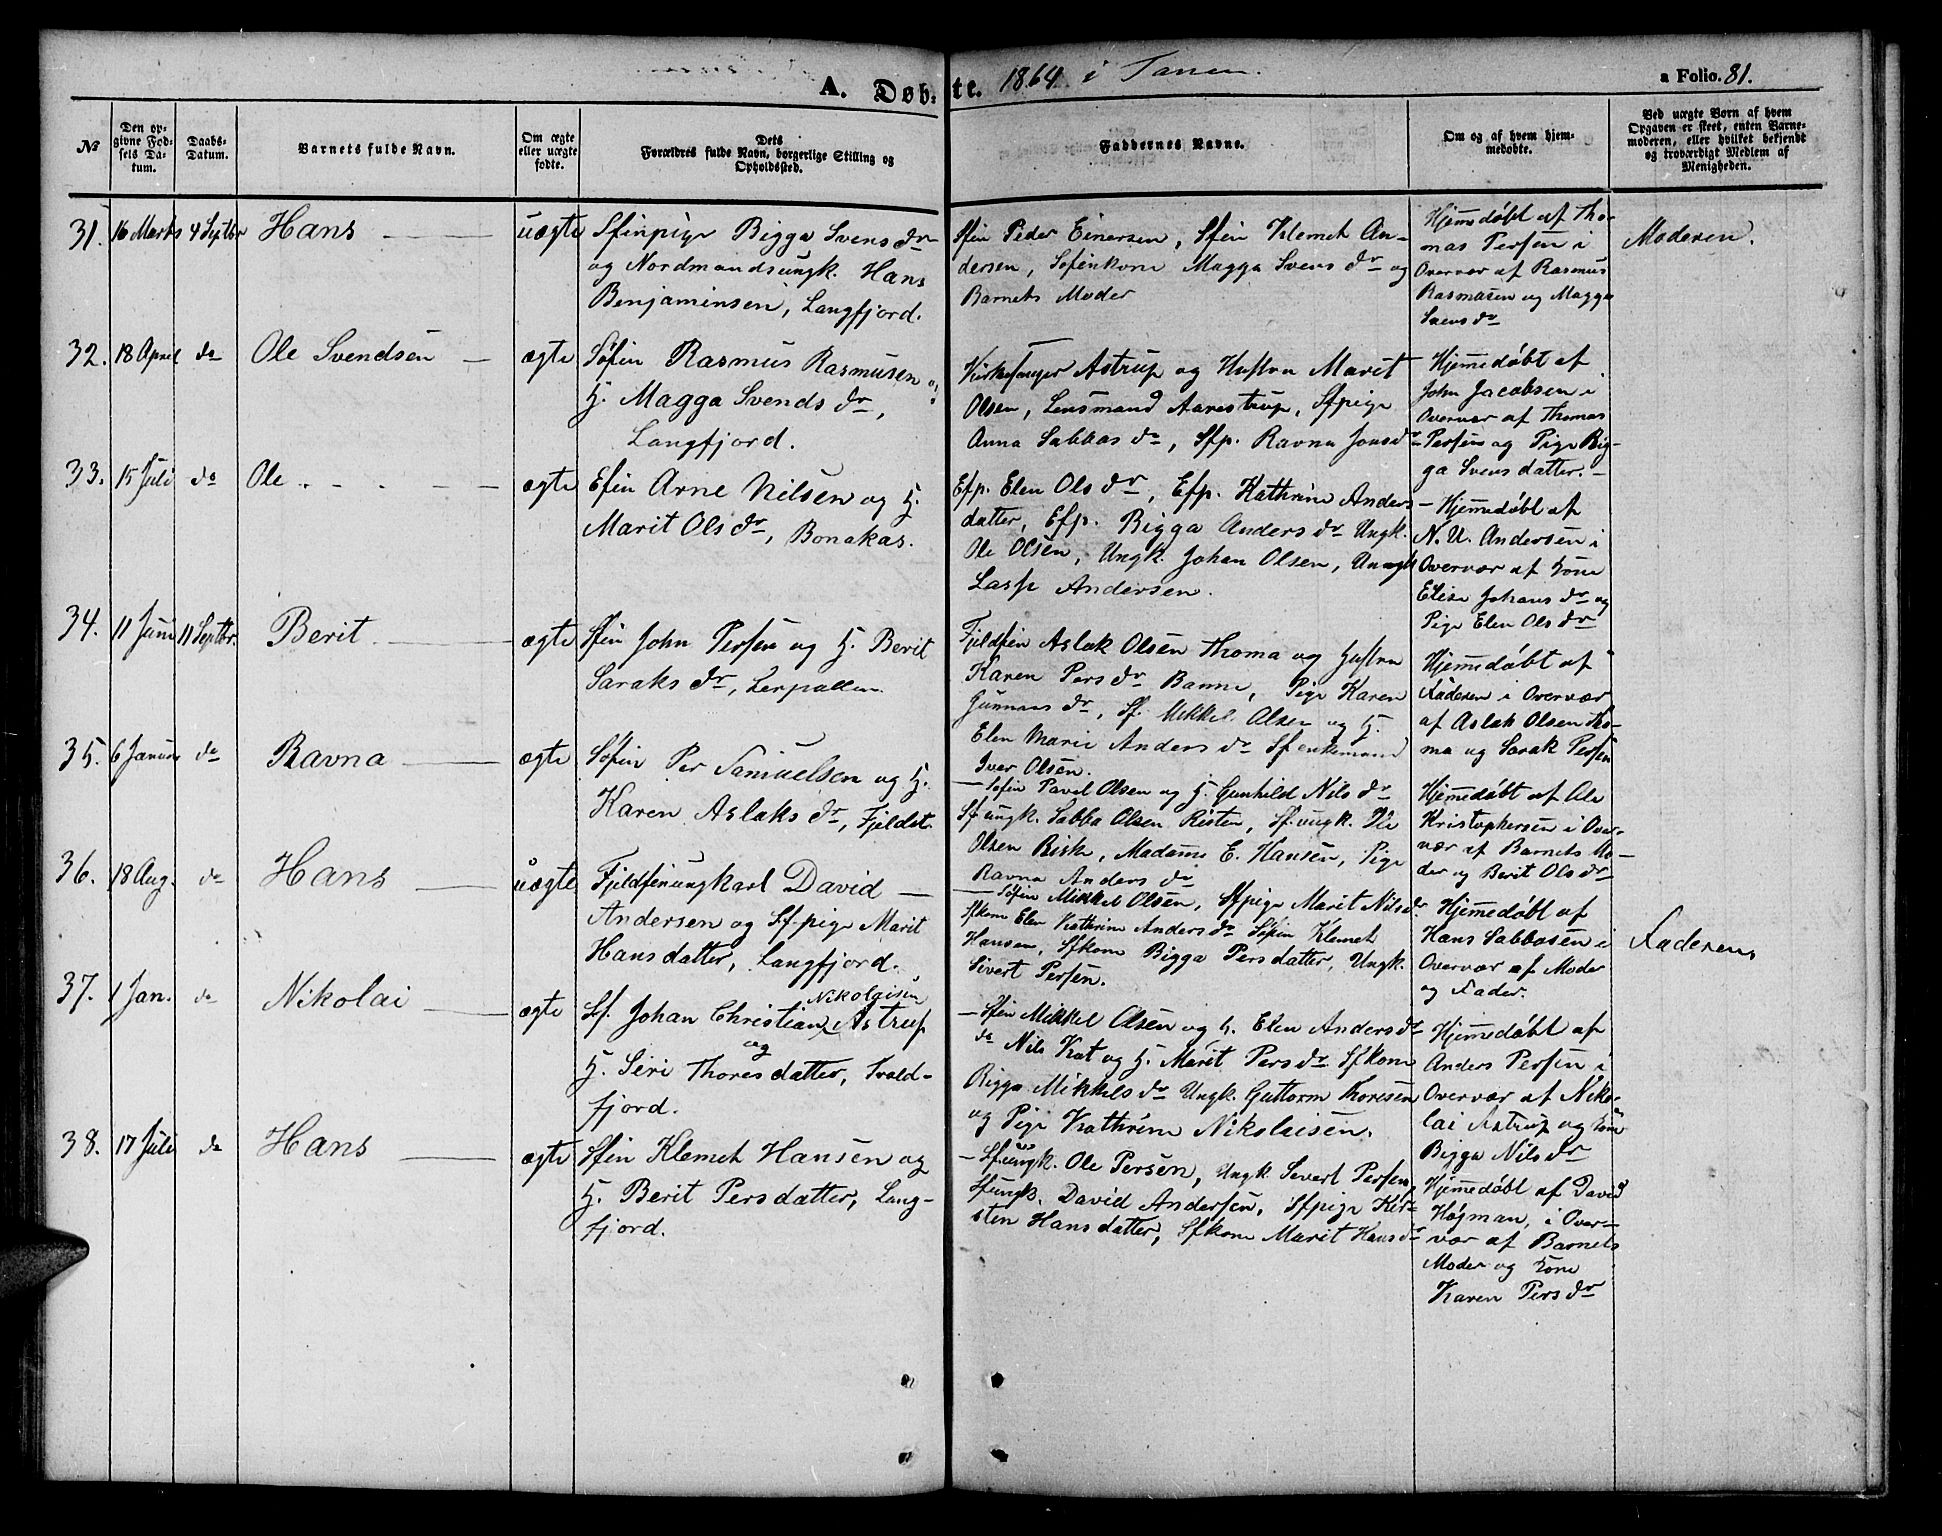 A. Døbte. 1864 i Tanen.
a Folio. 81.
No
Den opgivne Fødsels Datum.
Daabs-Datum.
Barnets fulde Navn.
Om ægte eller uægte fødte.
Dets Forældres fulde Navn, borgerlige Stilling og Opholdssted.
Faddernes Navne.
Om og af hvem hjemmedøbte.
Ved uægte Børn af hvem Opgaven er skeet, enten Barnemoderen, eller hvilket bekjendt og troværdigt Medlem af Menigheden.
31. 16 Marts 4 Septbr Hans uægte
Sfinpige Bigga Svens dr
og Nordmandsungk. Hans
Benjaminsen, Langfjord.
Sfin Peder Einersen, Sfin Klemet An-
dersen, Søfinkone Magga Svens dr og
Barnets Moder
Hjemedøbt af Tho-
mas Persen i
Overvær af Rasmus
Rasmusen og Magga
Svens dr
Moderen.
32. 18 April do Ole Svendsen ægte
Søfin Rasmus Rasmusen og
H. Magga Svends dr,
Langfjord.
Kirkesanger Astrup og Hustru Marit
Olsen, Lensmand Aarestrup, Sfpige
Anna Sabbas dr, Sfp. Ravna Jons dr
Hjemedøbt af
John Jacobsen i
Overvær af Thomas
Persen og Pige Big-
ga Svens datter.
33. 15 Juli do Ole ægte
Efin Arne Nilsen og H.
Marit Ols dr, Bonakas.
Efp. Elen Ols dr, Efp. Kathrine Anders
datter, Efp. Bigga Anders dr Ungk.
Ole Olsen, Ungk. Johan Olsen, Ungk
Lasse Andersen.
Hjemedøbt af
N. U. Andersen i
Overvær af Kone
Elise Johans dr og
Pige Elen Ols dr
34. 11 Juni 11 Septbr. Berit ægte
Sfin John Persen og H. Berit
Saraks dr, Lerpollen.
Fjeldfin Aslak Olsen Thoma og Hustru
Karen Pers dr Banne, Pige Karen
Gunnars dr, Sf. Mikkel Olsen og H.
Elen Marie Anders dr Sfenkemand
Iver Olsen.
Hjemedøbt af
Faderen i Overvær
af Aslak Olsen Tho-
ma og Sarak Persen
35. 6 Januar do Ravna ægte
Søfin Per Samuelsen og H.
Karen Aslaks dr, Fjeldst.
Søfin Pavel Olsen og H. Gunhild Nils dr
Sf ungk. Sabba Olsen Risten, Sf. ungk. Ole
Olsen Bisk, Madame E. Hansen, Pige
Ravna Anders dr
Hjemedøbt af Ole
Kristophersen i Over-
vær af Barnets Mo-
der og Berit Ols dr
36. 18 Aug. do Hans uægte
Fjeldfinungkarl David
Andersen og Sf. pige Marit
Hansdatter, Langfjord.
Søfin Mikkel Olsen, Sfpige Marit Nils dr.
Sfkone Elen Kathrine Anders dr Søfin Klemet
Hansen, Sfkone Bigga Persdatter, Ungk.
Sivert Persen.
Hjemedøbt af
Hans Sabbasen i
Overvær af Moder
og Fader.
Faderen
37. 1 Jan. do Nikolai ægte
Sf. Johan Christian Nikolaisen Astrup
og
H. Siri Thoresdatter, Svold-
fjord.
Sfin Mikkel Olsen og H. Elen Anders dr
do Nils Kat og H. Marit Pers dr Sfkone
Bigga Mikkels dr Ungk. Guttorm Thoresen
og Pige Kathrine Nikolaisen.
Hjemedøbt af
Anders Persen i
Overvær af Niko-
lai Astrup og Kone
Bigga Nils dr
38. 17 Juli do Hans ægte
Sfin Klemet Hansen og
H. Berit Persdatter, Lang-
fjord.
Sfungk. Ole Persen, Ungk. Severt Persen,
Sfungk. David Andersen, Sfpige Kir-
sten Hansdatter, Sfkone Marit Hans dr
Hjemedøbt af David
Høgman, i Over-
vær af Barnets
Moder og Kone
Karen Pers dr